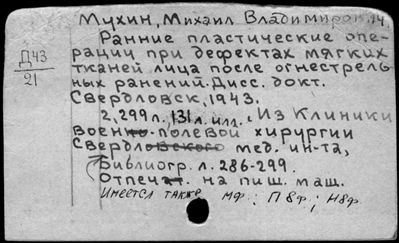 Мухин, Михаил Владимиров. 14.
Ранние пластические опе-
рации при дефектах мягких
Д43
21
тканей лица после огнестрель-
ных ранений. Дисс. докт.
Свердловск, 1943.
2, 299 л., 131 л. илл. (Из Клиники
военно-полевой хирургии
Свердловского мед. ин-та,
Библиогр. л. 286-299.
Отпечат. на пиш. маш.
Имеется также мф.; П8ф; Н8ф.